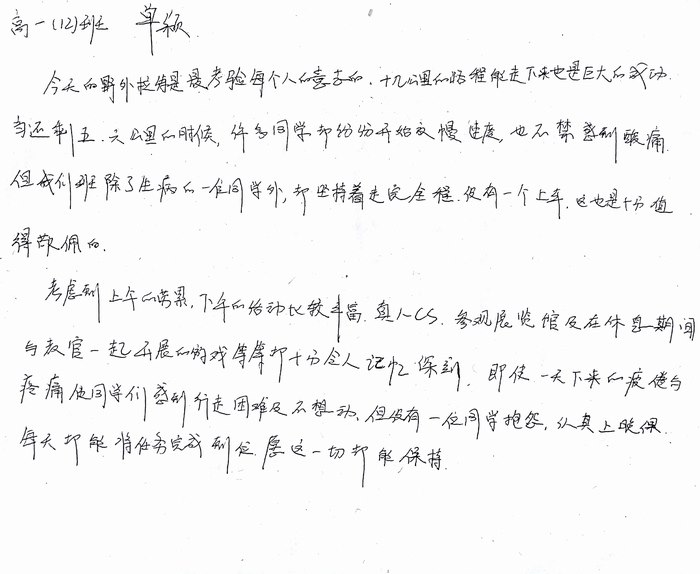 高一(12)班 单颖
今天的野外拉练是最考验每个人的意志的.十几公里的路程能走下来也是巨大的成功.
当还剩五.六公里的时候,许多同学都纷纷开始放慢速度,也不禁感到酸痛.
但我们班除了生病的一位同学外,都坚持着走完全程.没有一个上车.这也是十分值
得敬佩的.
考虑到上午的劳累,下午的活动比较丰富.真人CS.参观展览馆及在休息期间
与教官一起开展的游戏等等都十分令人记忆深刻.即使一天下来的疲倦与
疼痛使同学们感到行走困难及不想动.但没有一位同学抱怨,认真上晚课.
每天都能将任务完成到位.愿这一切都能保持.